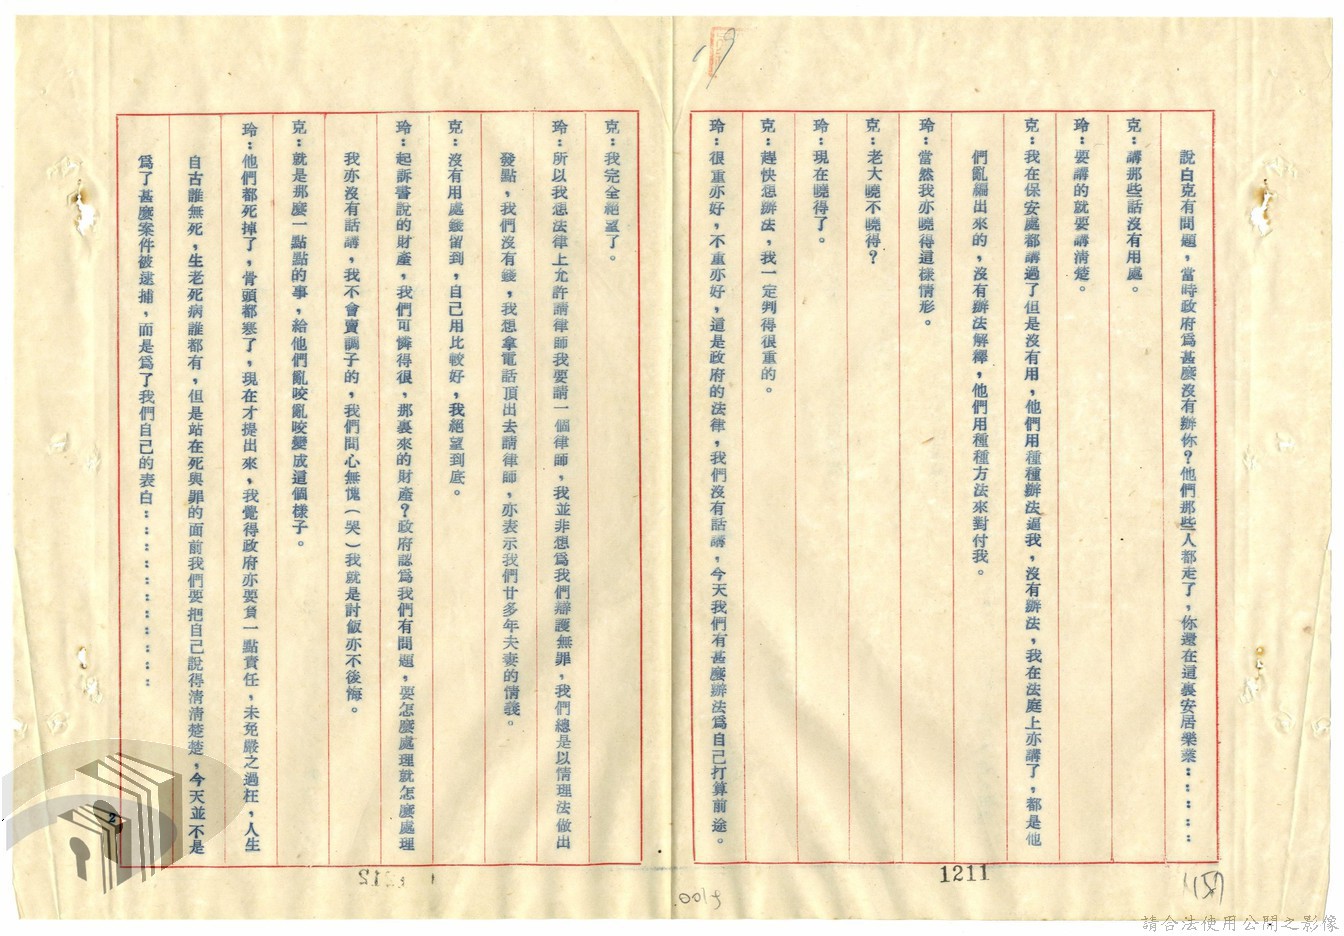 說白克有問題，當時政府爲甚麼沒有辦你？他們那些人都走了，你還在這裏安居樂業：：：：：
克：講那些話沒有用處。
玲：要講的就要講清楚。
克：我在保安處都講過了但是沒有用，他們用種種辦法逼我，沒有辦法，我在法庭上亦講了，都是他
們亂編出來的，沒有辦法解釋，他們用種種方法來對付我。
玲：當然我亦曉得這樣情形。
克：老大曉不曉得？
玲：現在曉得了。
克：趕快想辦法，我一定判得很重的。
玲：很重亦好，不重亦好，這是政府的法律，我們沒有話講，今天我們有甚麼辦法爲自己打算前途。
克：我完全絕望了。
玲：所以我想法律上允許請律師我要請一個律師，我並非想爲我們辯護無罪，我們總是以情理法做出
發點，我們沒有錢，我想拿電話頂出去請律師，亦表示我們廿多年夫妻的情義。
克：沒有用處錢留到，自己用比較好，我絕望到底。
玲：起訴書說的財產，我們可憐得很，那裏來的財產？政府認爲我們有問題，要怎麼處理就怎麼處理
我亦沒有話講，我不會賣調子的，我們問心無愧（哭）我就是討飯亦不後悔。
克：就是那麼一點點的事，給他們亂咬亂咬變成這個樣子。
玲：他們都死掉了，骨頭都寒了，現在才提出來，我覺得政府亦要負一點責任，未免嚴之過枉，人生
自古誰無死，生老死病誰都有，但是站在死與罪的面前我們要把自己說得清清楚楚，今天並不是
爲了甚麼案件被逮捕，而是爲了我們自己的表白：：：：：：：：：：：
1211
1212
2
請合法使用公開之影像